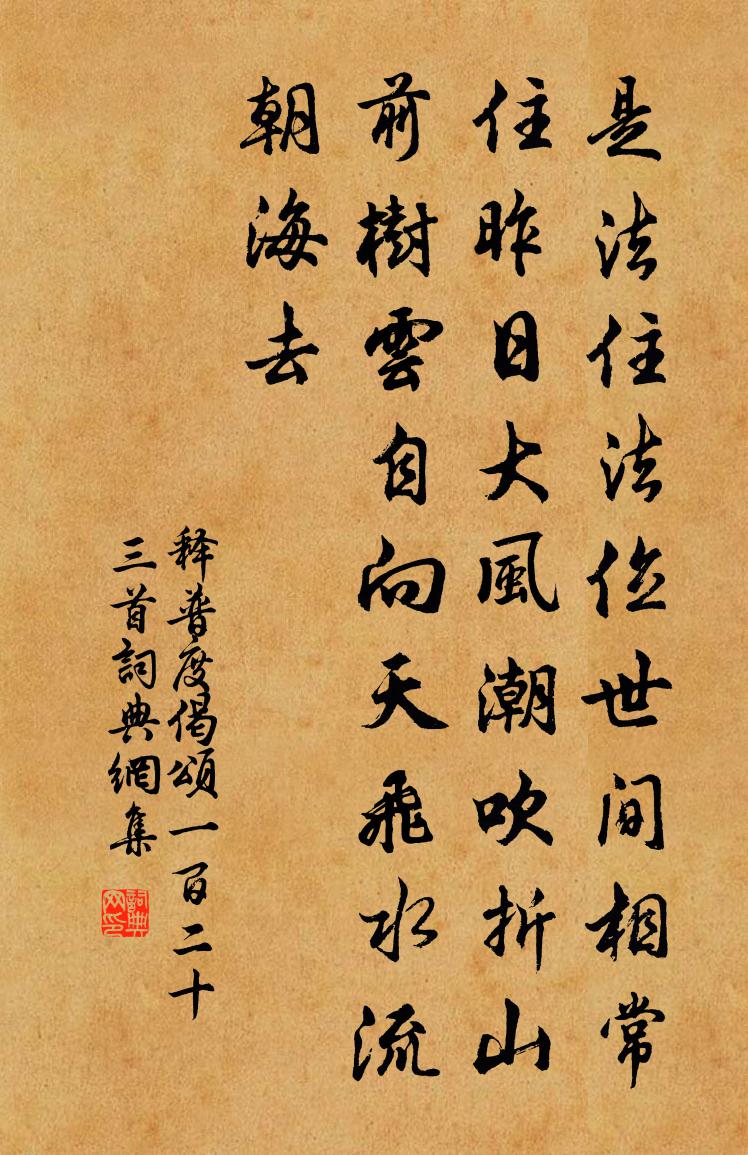 是法住法位世間相常
住昨日大風潮吹折山
前樹雲自向天飛水流
朝海去
释普度偈頌一百二十
三首詞典網集
詞典
网印